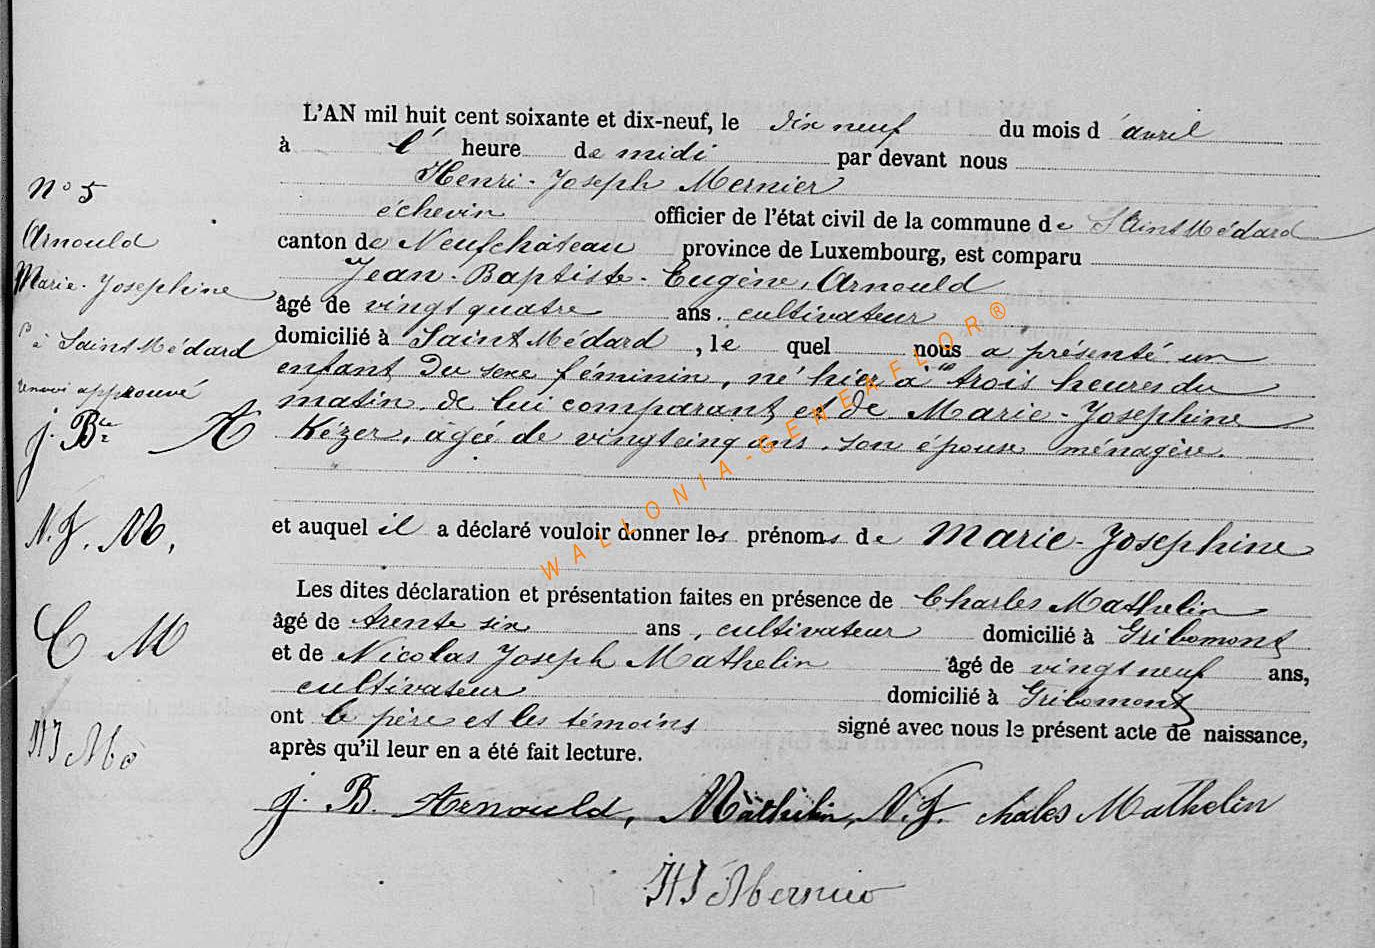 L'AN mil huit cent soixante et dix-neuf, le dix neuf du mois d'avril
à l' heure de midi par devant nous
Henri-Joseph Mernier
échevin officier de l'état civil de la commune de Saint Médard
canton de Neufchâteau province de Luxembourg, est comparu
Jean-Baptiste-Eugène, Arnould
âgé de vingt quatre ans, cultivateur
domicilié à Saint Médard, le quel nous a présenté un
enfant du sexe féminin, né hier à trois heures du
matin, de lui comparant, et de Marie-Josephine
Kézer, âgée de vingt cinq ans, son épouse ménagère.
et auquel il a déclaré vouloir donner les prénoms de Marie-Josephine
Les dites déclaration et présentation faites en présence de Charles Mathelin
âgé de trente six ans, cultivateur domicilié à Gribomont
et de Nicolas Joseph Mathelin âgé de vingt neuf ans,
cultivateur domicilié à Gribomont
ont le père et les témoins signé avec nous le présent acte de naissance,
après qu'il leur en a été fait lecture.
J. B. Arnould, Mathelin, N. J. Chales Mathelin
HJ Mernier
N° 5
Arnould
Marie-Josephine
à Saint Médard
renvoi approuvé
J. Bte A
N. J. M.
C M
HJ Me
WALLONIA-GENEAFLOR®